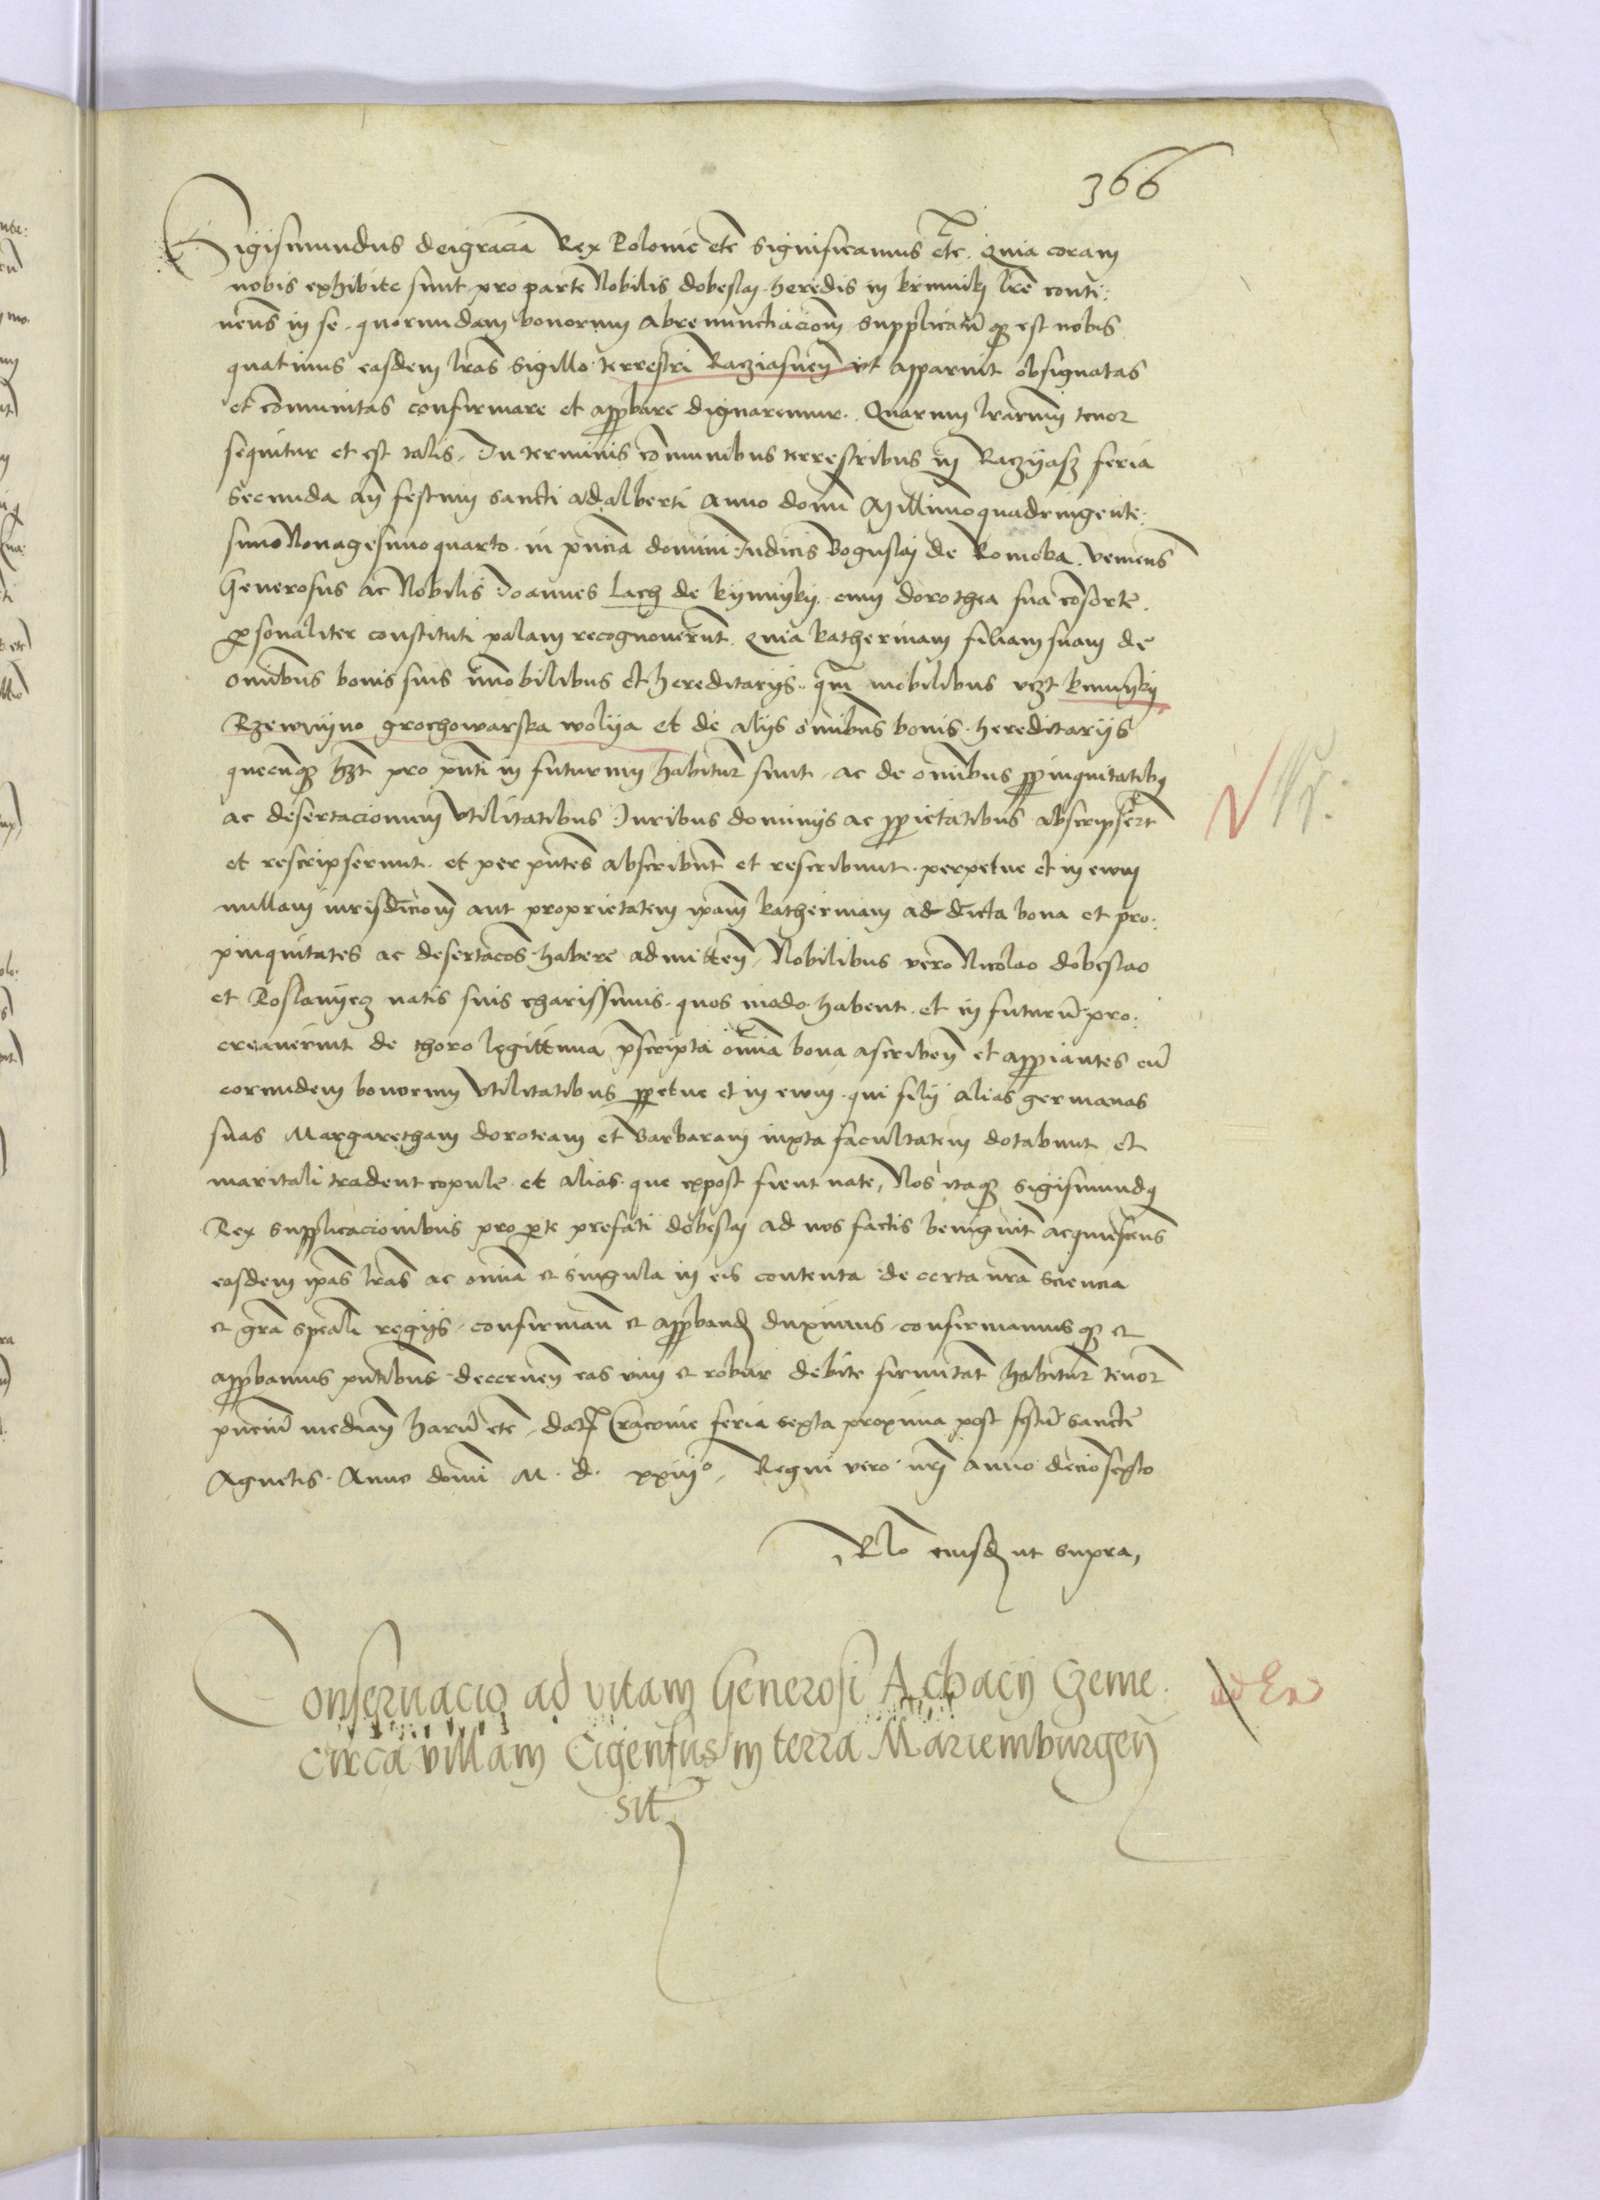 366
Sigismundus deigracia Rex Polonie etc significamus etc. Quia coram
nobis exhibite sunt pro parte Nobilis dobeslaj heredis in kimnikj lre conti:
nens in se quorundam bonorum abrenunctiaciom supplicatu q est nobis
quatinus easdem lras sigillo terrestri Racziasnen ut apparuit obsignatas
et comunitas confirmare et approbare dignaremur. Quarum lrarum tenor
sequitur et est talis. In terminis comunibus terrestribus in Raczyasz feria
secunda an festum sancti adalberti anno domi Millimoquadringente:
simo Nonagesimoquarto in pncia domini Judicis Boguslaj de Komoba. veniens
Generosus ac Nobilis Joannes Lach de kymnykij cum dorothea sua cosorte
personaliter constituti palam recognoverunt. Quia katherinam filiam suam de
omibus bonis suis imobilibus et hereditarijs qm mobilibus vzt kmnykij
Rzewnyno grochowarska wolya et de alijs omibus bonis hereditarijs
quecunq hzt pro pnti in futurum habitur sunt ac de omibus ppinquitatibq
ac desertacionum utilitatibus Juribus dominijs ac pprietatibus abscripsert
et rescripserunt. et per pntes abscribunt et rescribunt perpetue et in evum
nullam iurisdiciom aut proprietatem ipam katherinam ad dicta bona et pro:
pinquitates ac desertacos habere admitten, Nobilibus vero Nicolao dobeslao
et Roslanyecz natis suis charissimis quos modo habent et in futuru pro:
creaverint de thoro legittima pscripta omia bona ascriben et appriantes cu
eorundem bonorum utilitatibus ppetue et in evum qui filij alias germanas
suas Margaretham doroteam et Barbaram iuxta facultatem dotabunt et
maritali tradent copule et alias que expost fient nate, Nos itaq sigismundq
Rex supplicacionibus pro pte prefati dobeslaj ad nos factis benignit acquiscens
easdem ipas lras ac omia et singula in eis contenta de certa nra sciencia
et gra speali regijs confirman et approband duximus confirmamus q et
approbamus pntibus decernen eas vim et robur debite firmitat habitur tenor
pnciu median haru etc, dat Cracovie feria sexta proxima post festu sancte
Agnetis. Anno domi M. d. xxiijo, Regni vero nri anno deciosexto
Rlo eiusd ut supra,
Conservacio ad vitam Generosi Achacij Czeme
circa villam Eigensus in terra Mariemburgen
sit